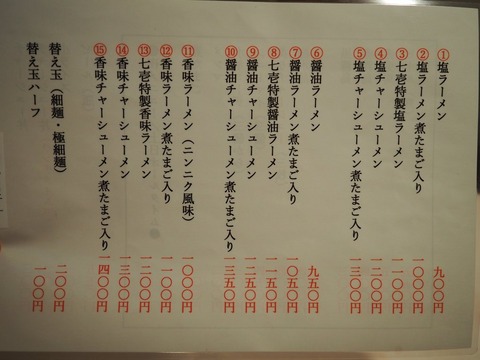 ①塩ラーメン 九〇〇円
②塩ラーメン煮たまご入り 一〇〇〇円
③七壱特製塩ラーメン 一一〇〇円
④塩チャーシューメン 一二〇〇円
⑤塩チャーシューメン煮たまご入り 一三〇〇円
⑥醤油ラーメン 九五〇円
⑦醤油ラーメン煮たまご入り 一〇五〇円
⑧七壱特製醤油ラーメン 一一五〇円
⑨醤油チャーシューメン 一二五〇円
⑩醤油チャーシューメン煮たまご入り 一三五〇円
⑪香味ラーメン（ニンニク風味） 一〇〇〇円
⑫香味ラーメン煮たまご入り 一一〇〇円
⑬七壱特製香味ラーメン 一二〇〇円
⑭香味チャーシューメン 一三〇〇円
⑮香味チャーシューメン煮たまご入り 一四〇〇円
替え玉（細麺・極細麺） 二〇〇円
替え玉ハーフ 一〇〇円